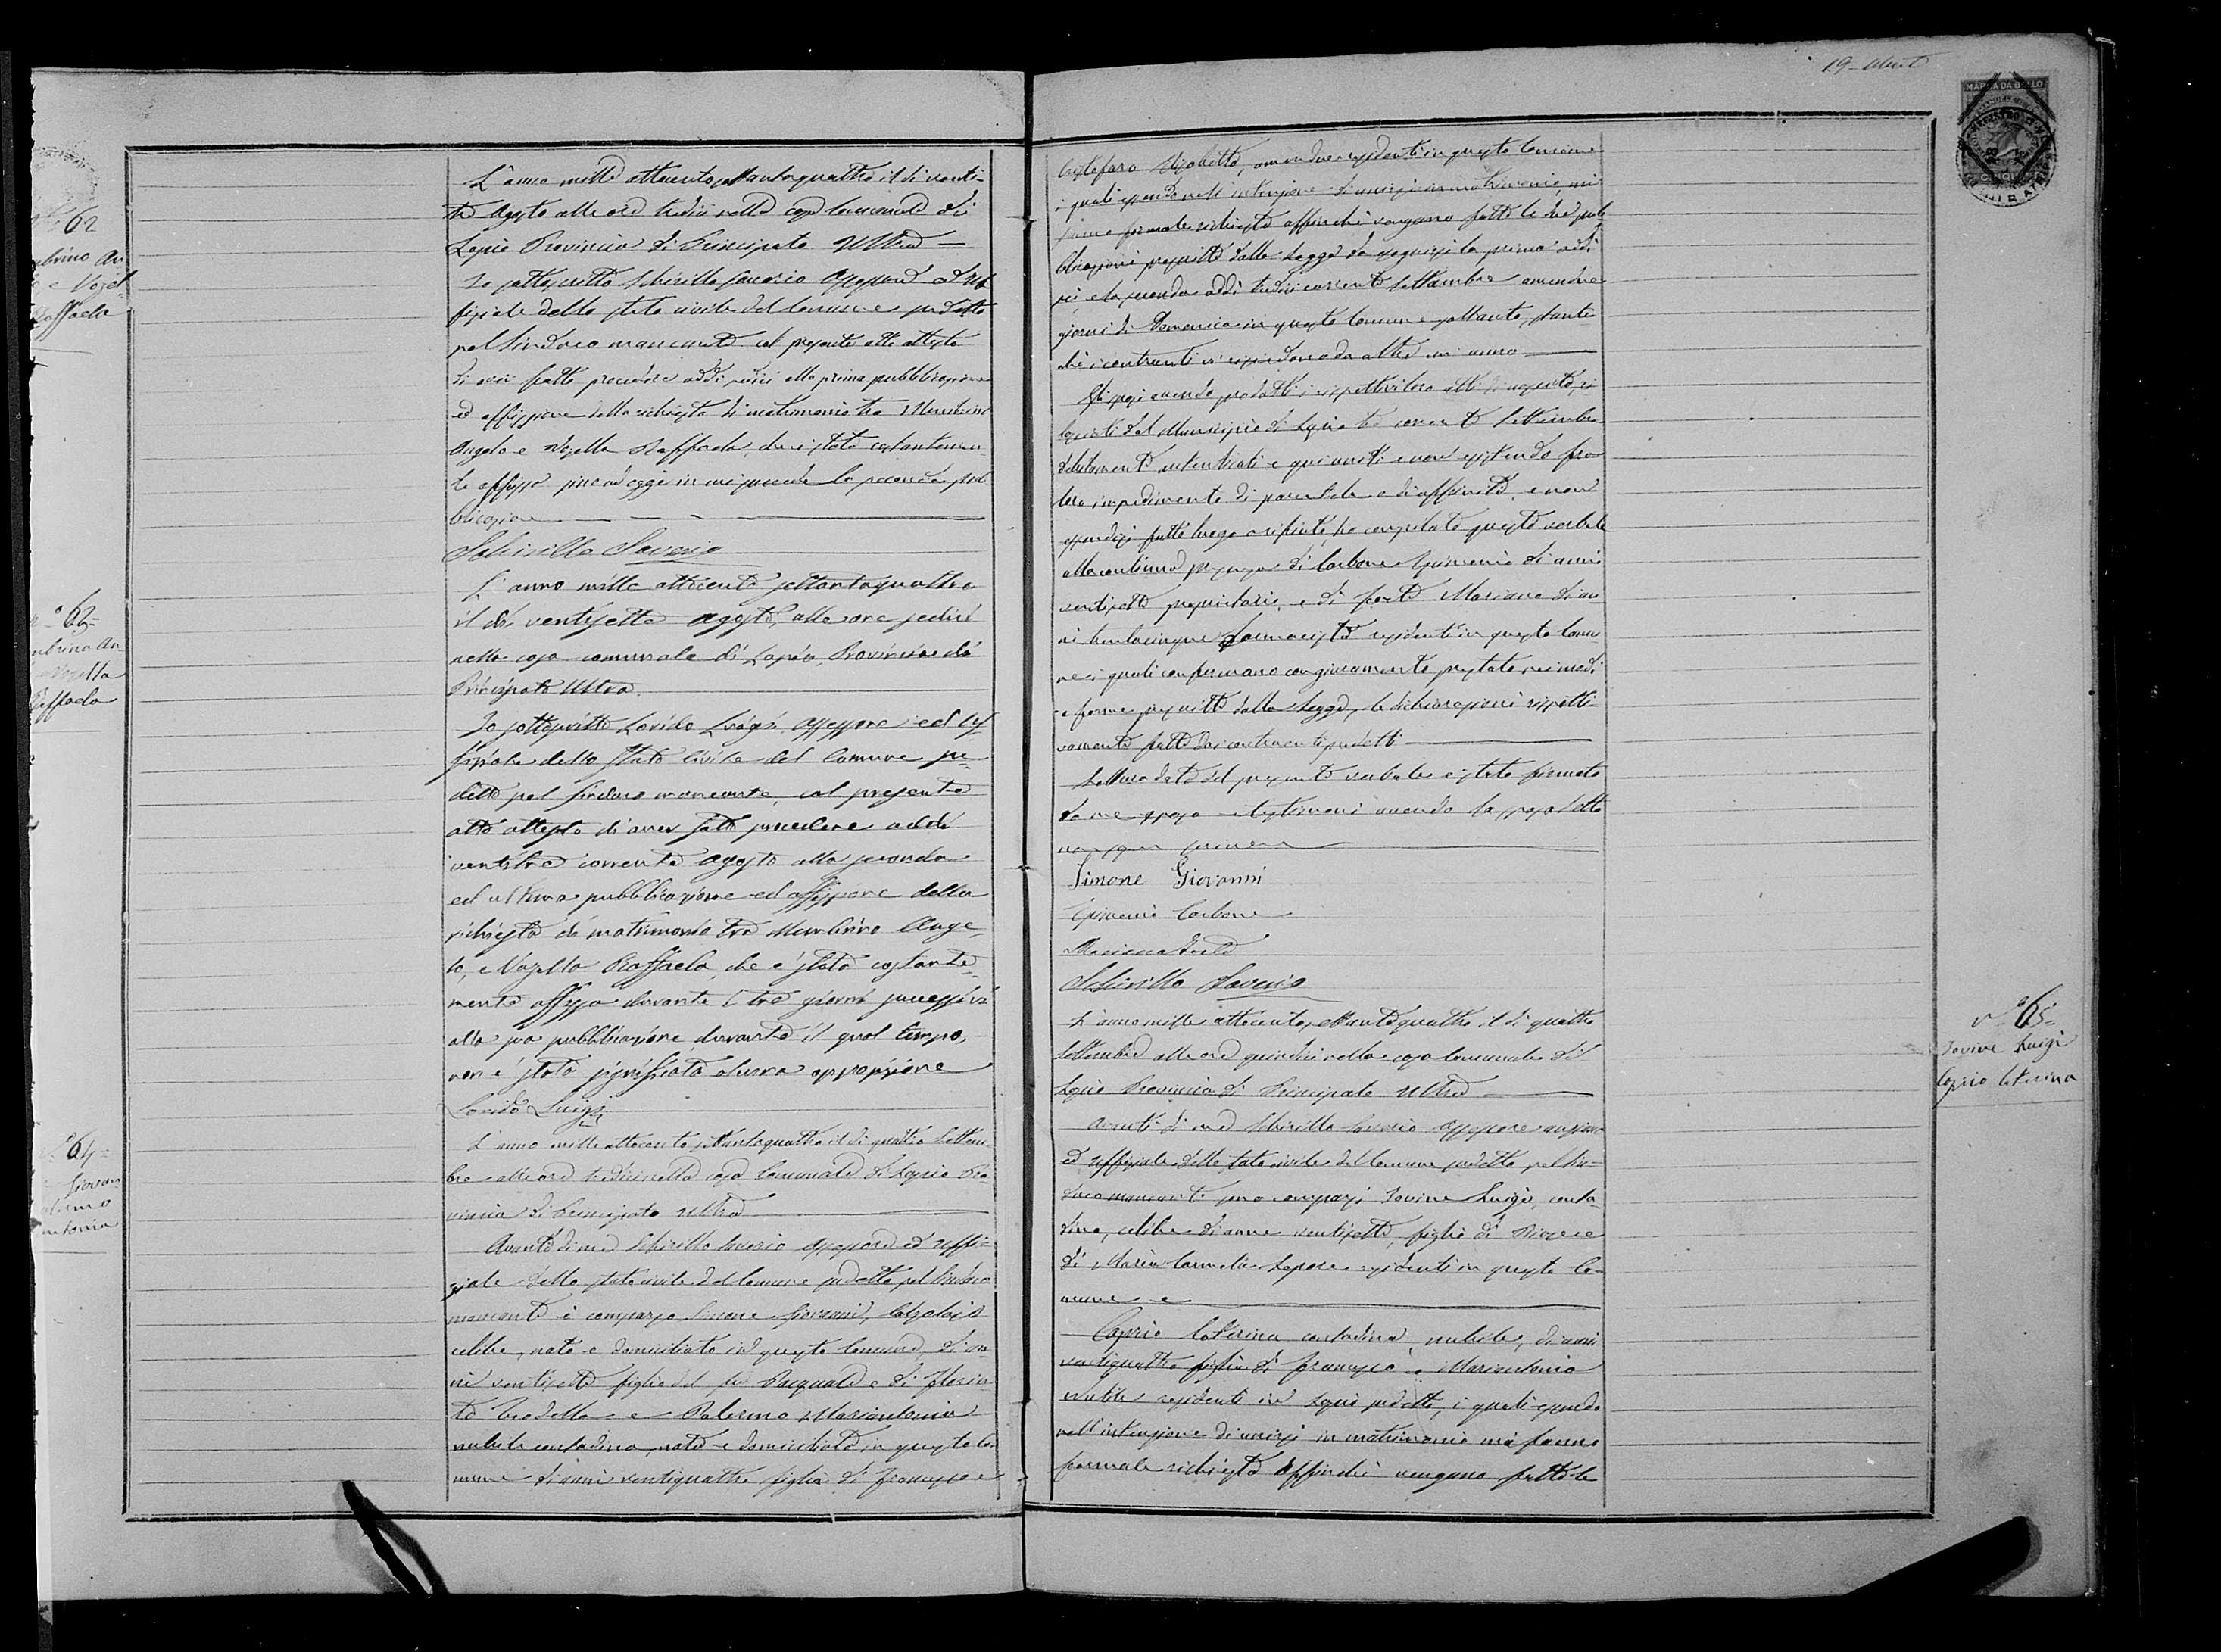 n.° 62
mbrino An
e Nozel
Raffaela
L'anno mille ottocento settantaquattro il di venti-
tre Agosto alle ore tredici nella casa comunale di
Lapio Provincia di Principato Ultra
Io sottoscritto Schirillo Saverio Assessore ed Uf
fiziale dello stato civile del Comune predetto
pel Sindaco mancante col presente atto attesto
di aver fatto procedere addi sedici alla prima pubblicazione
ed affissione della richiesta di matrimonio tra Membrino
Angelo e Nozella Raffaela, che è stata costantemen-
te affissa sino ad oggi in cui succede la seconda pub
blicazione
Schirillo Saverio
n.° 63=
mbrino An
Nozella
Raffaela
L'anno mille ottocento settantaquattro
il di ventisette Agosto, alle ore sedici
nella casa comunale di Lapio, Provincia di
Principato Ultra.
Io sottoscritto Lonido Luigi, assessore ed Uf
fiziale dello Stato Civile del Comune pre-
detto pel Sindaco mancante, col presente
atto attesto di aver fatto procedere addi
ventitre corrente Agosto alla seconda
ed ultima pubblicazione ed affissione della
richiesta di matrimonio tra Membrino Ange-
lo, e Nozella Raffaela, che è stata costante-
mente affissa durante i tre giorni successivi
alla sua pubblicazione durante il qual tempo,
non è stata significata alcuna opposizione
Lonido Luigi
n.° 64=
Giovan
Palermo
antonia
L'anno mille ottocento settantaquattro il di quattro Settem-
bre alle ore tredici nella casa Comunale di Lapio Pro-
vincia di Principato Ultra
Avanti di me Schirillo Saverio Assessore ed Uffi-
ziale dello stato civile del Comune predetto pel Sindaco
mancante è comparso Simone Giovanni, Calzolaio
celibe, nato e domiciliato in questo Comune, di an-
ni ventisette figlio del fu Pasquale e di Florin-
da e Palermo Mariantonia
nubile contadina nata e domiciliata in questo Co-
mune di anni ventiquattro figlia di Francesco e
19-
MARCA DA BOLLO
Cristofaro Elisabetta, amendue residenti in questo Comune
i quali essendo nell'intenzione di unirsi in matrimonio, mi
fanno formale richiesta affinchè vengano fatte le due pub
blicazioni prescritte dalla Legge da eseguirsi la prima addi
sei e la seconda addi tredici corrente Settembre amendue
giorni di Domenica in questo Comune soltanto, stante
chè i contraenti vi risiedono da oltre un anno
Gli sposi avendo prodotti i rispettivi loro atti di nascita, ri
lasciati dal Municipio di Lapio tre corrente Settembre
debitamente autenticati e qui uniti e non esistendo fra
loro impedimento di parentela o di affinità, e non
essendosi fatto luogo a rifiuto, ho compilato questo verbale
alla continua presenza di Carbone Epimenio di anni
ventisette proprietario, e di Forte Mariano di an-
ni trentacinque Farmacista residenti in questo Comu
ne, i quali confermano con giuramento prestato nei modi
e forme prescritte dalla Legge, le dichiarazioni rispetti
vamente fatte dai contraenti predetti
Lettura data del presente verbale è stato firmato
da me sposo e testimoni avendo la sposa detto
non saper firmare
Simone Giovanni
Epimenio Carbone
Mariano Forte
Schirillo Saverio
n.° 65=
Iovine Luigi
Caprio Caterina
L'anno mille ottocento settantaquattro il di quattro
Settembre alle ore quindici nella casa Comunale di
Lapio Provincia di Principato Ultra
Avanti di me Schirillo Saverio Assessore anziano
ed Uffiziale dello stato civile del Comune predetto pel Sin-
daco mancante sono comparsi Iovine Luigi, conta-
dino, celibe di anni ventisette, figlio di e
di Maria Carmela Lepore residenti in questo Co-
mune e
Caprio Caterina contadina, nubile, di anni
ventiquattro figlia di Francesco e Mariantonia
residenti in Lapio predetto, i quali essendo
nell'intenzione di unirsi in matrimonio mi fanno
formale richiesta affinchè vengano fatte le